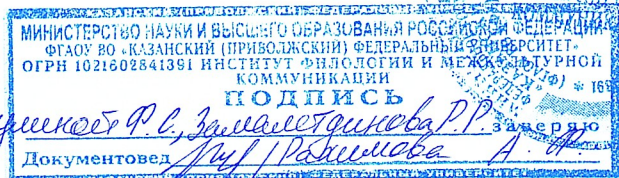 МИНИСТЕРСТВО НАУКИ И ВЫСШЕГО ОБРАЗОВАНИЯ РОССИЙСКОЙ ФЕДЕРАЦИИ
ФГАОУ ВО «КАЗАНСКИЙ (ПРИВОЛЖСКИЙ) ФЕДЕРАЛЬНЫЙ УНИВЕРСИТЕТ»
ОГРН 1021602841391 ИНСТИТУТ ФИЛОЛОГИИ И МЕЖКУЛЬТУРНОЙ
КОММУНИКАЦИИ
ПОДПИСЬ
Ф. С., Замалетдинова Р.Р. заверяю
Документовед Рахимова А.